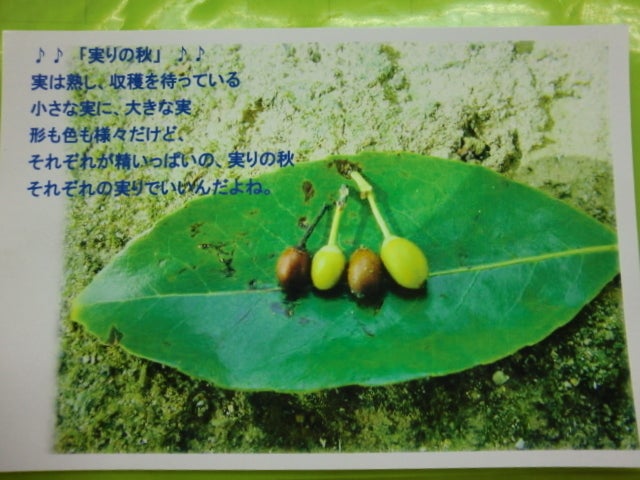 ♪♪ 「実りの秋」 ♪♪
実は熟し、収穫を待っている
小さな実に、大きな実
形も色も様々だけど、
それぞれが精いっぱいの、実りの秋
それぞれの実りでいいんだよね。